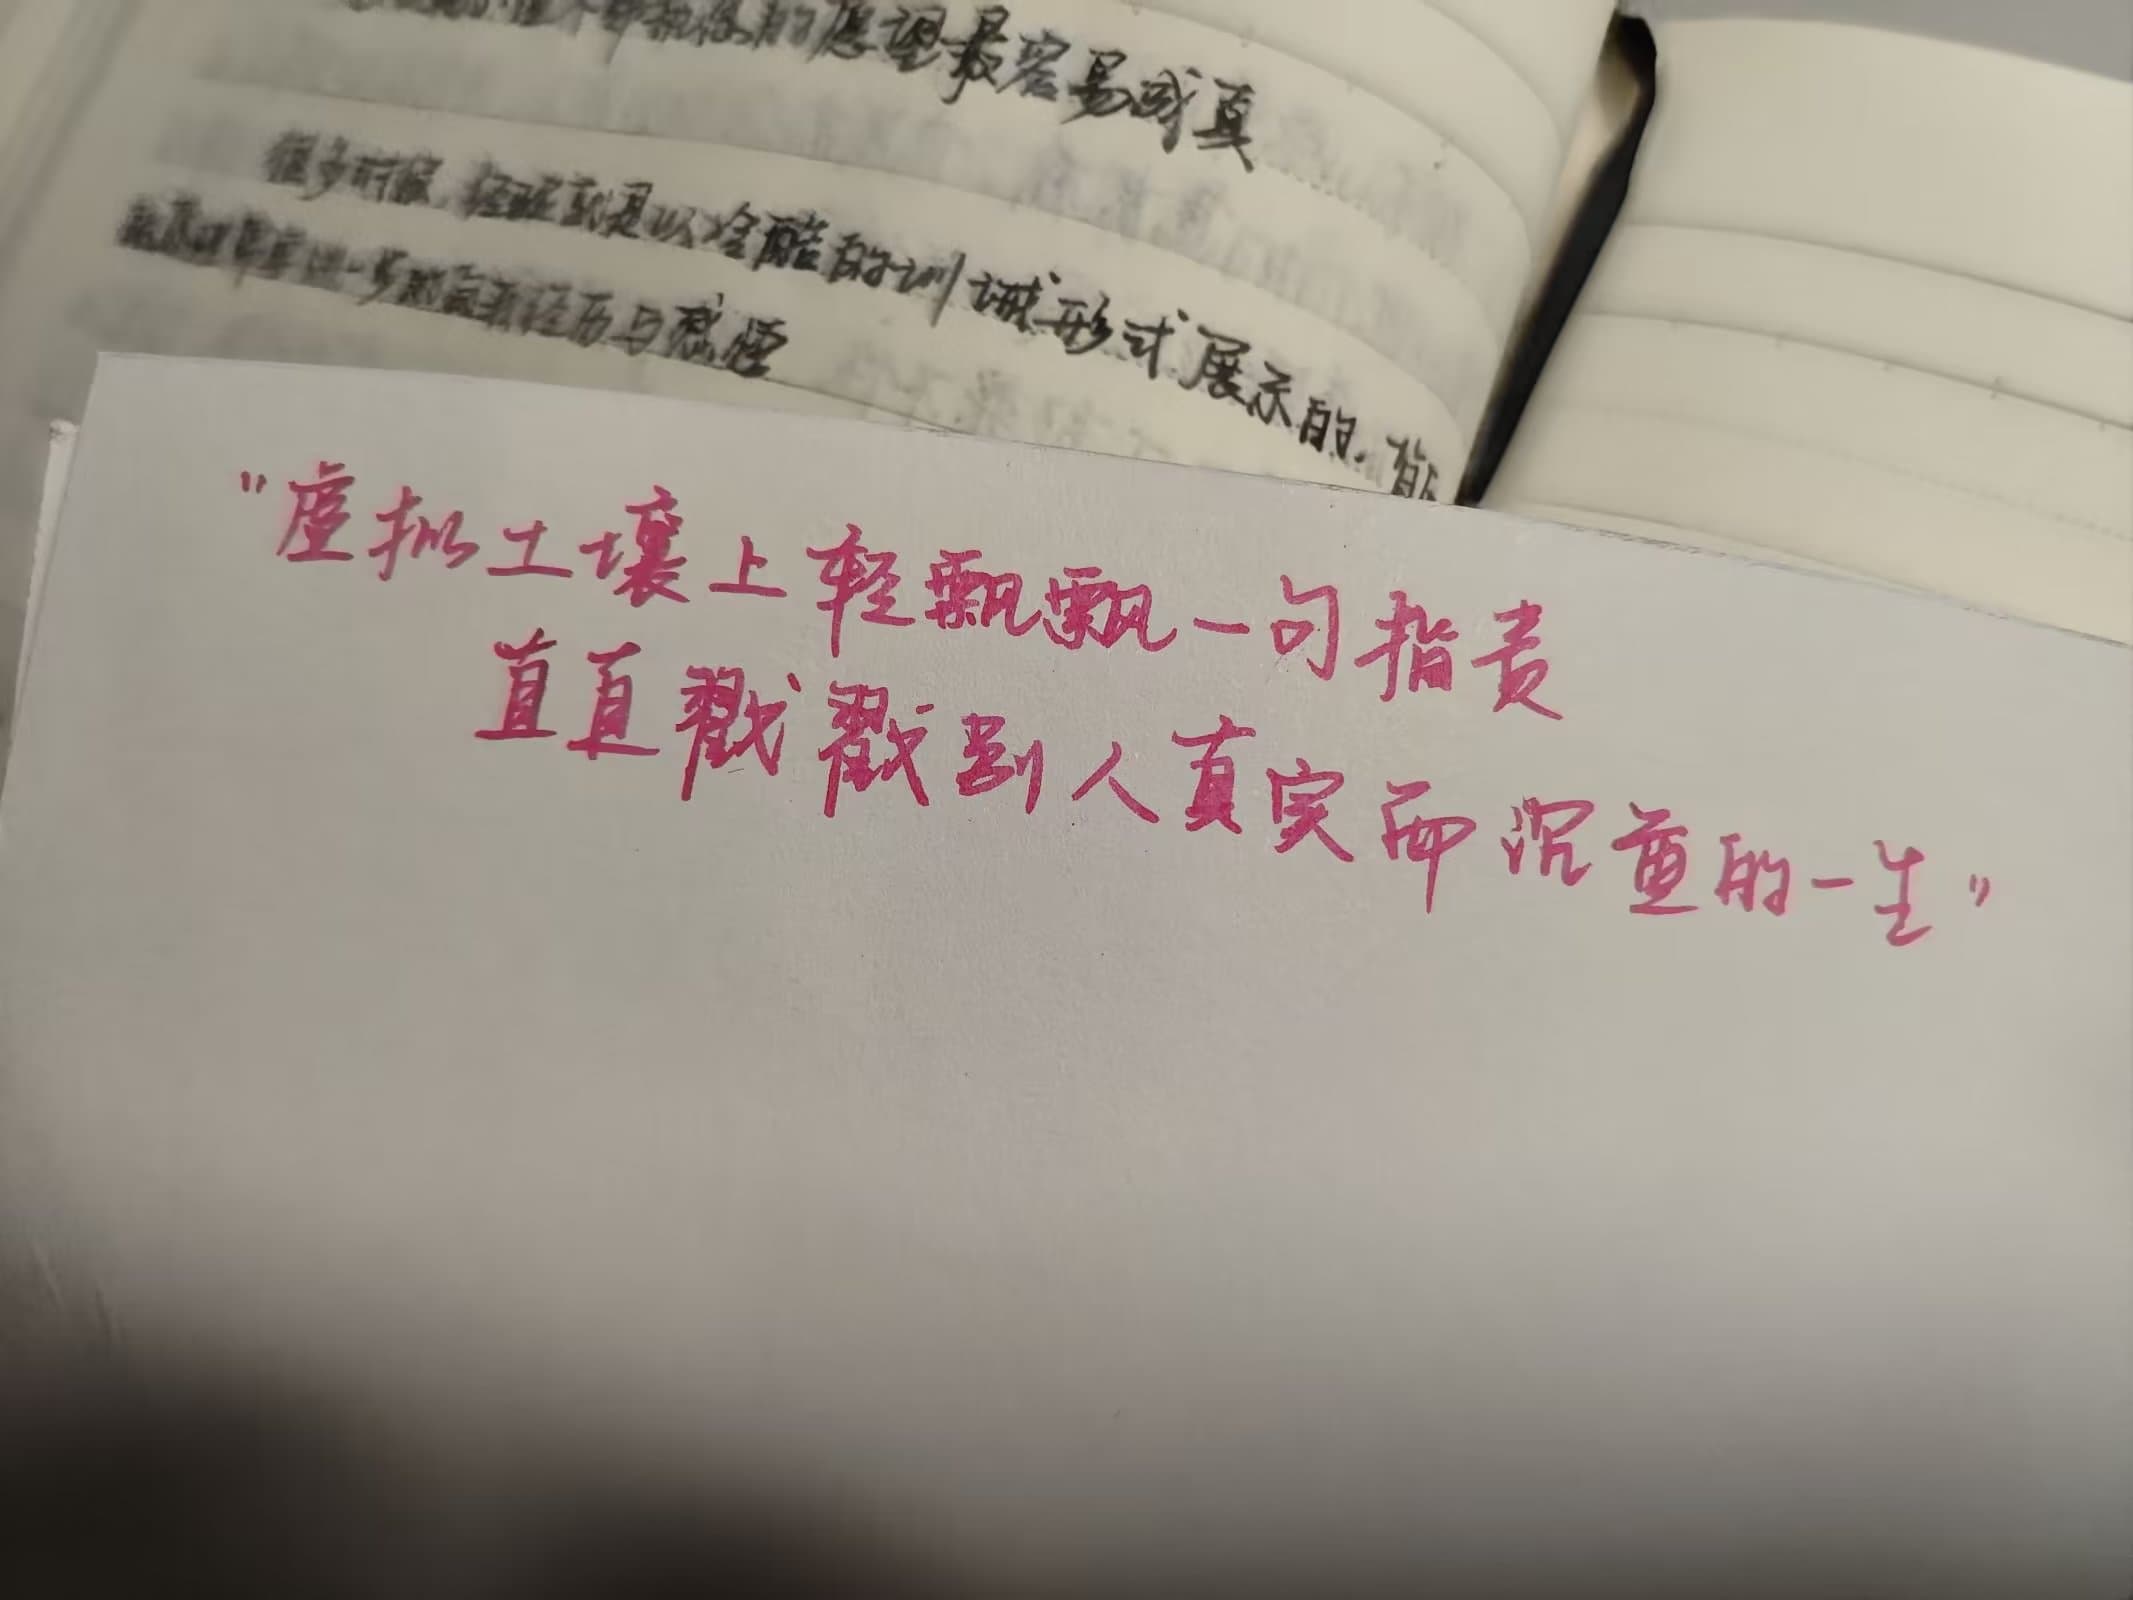 的愿望最容易成真
很多时候，经验就是以冷酷的训诫形式展示的，
与感悟
"虚拟土壤上轻飘飘一句指责
直直戳戳别人真实而沉重的一生"